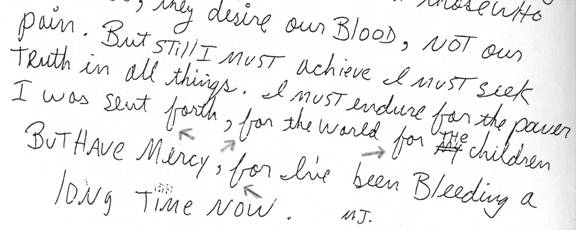 they desire our BLOOD, NOT our
pain. But still I MUST achieve I MUST seek
TRUTH in all things. I MUST endure for the power
I was sent forth, for the world for THE children
BUT HAVE Mercy, for I've been Bleeding a
long TIME NOW. MJ.